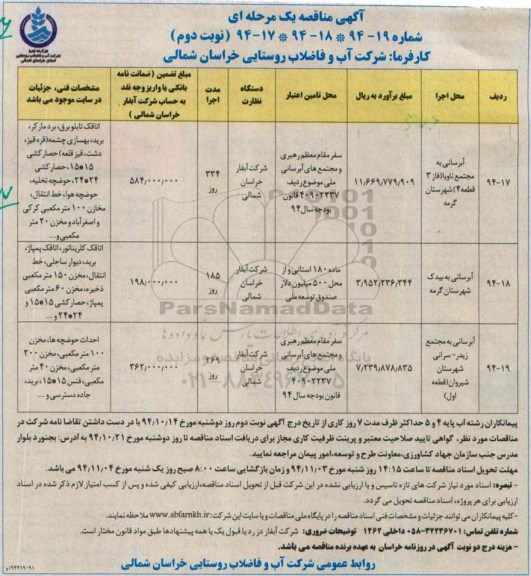 آگهی مناقصه یک مرحله ای
شماره ۱۹- ۹۴ * ۱۸- ۹۴ * ۱۷-۹۴ (نوبت دوم)
کارفرما: شرکت آب و فاضلاب روستایی خراسان شمالی
ردیف
محل اجرا
مبلغ برآورد به ریال
محل تامین اعتبار
دستگاه نظارت
مدت اجرا
مبلغ تضمین (ضمانت نامه
بانکی یا واریز وجه نقد
به حساب شرکت آبفار
خراسان شمالی)
مشخصات فنی، جزئیات
در سایت موجود می باشد
۹۴-۱۷
آبرسانی به
مجتمع ناویا(فاز ۳
قطعه ۴) شهرستان
گرمه
۱۱/۶۶۹/۷۷۹/۹۰۹
سفر مقام معظم رهبری
و مجتمع های آبرسانی
ملی موضوع ردیف
۴۰۹۰۲۲۳۷ قانون
بودجه سال ۹۴
شرکت آبفار
خراسان
شمالی
۳۳۴
روز
۵۸۴/۰۰۰/۰۰۰
اتاقک تابلو برق، برد مارکر،
برید، بهسازی چشمه(قره قیز،
دشت، قیز قلعه) حصارکشی
۱۵*۱۵، حصارکشی
۲۴*۲۴، حوضچه تخلیه،
حوضچه هوا، خط انتقال،
مخازن ۱۰۰ متر مکعبی کرکی
و اصفرآباد و مخزن ۲۰ متر
مکعبی و...
۹۴-۱۸
آبرسانی به بیدک
شهرستان گرمه
۳/۹۵۲/۲۳۶/۳۴۴
ماده ۱۸۰ استانی و از
محل ۵۰۰ میلیون دلار
صندوق توسعه ملی
شرکت آبفار
خراسان
شمالی
۱۸۵
روز
۱۹۸/۰۰۰/۰۰۰
اتاقک کلریناتور، اتاقک پمپاژ،
برید، دیوار ساحلی، خط
انتقال، مخزن ۱۵۰ متر مکعبی
ذخیره، مخزن ۶۰ متر مکعبی
پمپاژ، حصار کشی ۱۵*۱۵ و
۲۴*۲۴ و ...
۹۴-۱۹
آبرسانی به مجتمع
زیدر- سرانی
شهرستان
شیروان(قطعه
اول)
۷/۲۳۹/۸۷۸/۸۳۵
سفر مقام معظم رهبری
و مجتمع های آبرسانی
ملی موضوع ردیف
۴۰۹۰۲۲۳۷
قانون بودجه سال ۹۴
شرکت آبفار
خراسان
شمالی
۲۶۹
روز
۳۶۲/۰۰۰/۰۰۰
احداث حوضچه ها، مخزن
۱۰۰ متر مکعبی، مخزن ۳۰۰
متر مکعبی، مخزن ۴۰ متر
مکعبی، فنس ۱۵*۱۵، برید،
جاده دسترسی و ...
پیمانکاران رشته آب پایه ۴ و ۵ حداکثر ظرف مدت ۷ روز کاری از تاریخ درج آگهی نوبت دوم روز دوشنبه مورخ ۹۴/۱۰/۱۴ با در دست داشتن تقاضا نامه شرکت در
مناقصات مورد نظر، گواهی تایید صلاحیت معتبر و پرینت ظرفیت کاری مجاز برای دریافت اسناد مناقصه تا روز دوشنبه مورخ ۹۴/۱۰/۲۱ به آدرس: بجنورد بلوار
مدرس جنب سازمان جهاد کشاورزی، معاونت طرح و توسعه، امور پیمان مراجعه نمایید.
مهلت تحویل اسناد مناقصه تا ساعت ۱۴:۱۵ روز شنبه مورخ ۹۴/۱۱/۰۳ و زمان بازگشایی ساعت ۸:۰۰ صبح روز یک شنبه مورخ ۹۴/۱۱/۰۴ می باشد.
- تبصره: اسناد مورد نیاز شرکت های تازه تاسیس و یا ارزیابی نشده در این شرکت قبل از تحویل اسناد مناقصه، ارزیابی کیفی شده و پس از کسب امتیاز لازم ذکر شده در اسناد
ارزیابی برای هر پروژه، اسناد مناقصه تحویل می گردد.
-کلیه پیمانکاران می توانند جزئیات و مشخصات فنی اسناد مناقصه را در پایگاه ملی مناقصات و یا سایت این شرکت: www.abfarnkh.ir ملاحظه نمایند.
شماره تلفن تماس: ۳۲۲۴۶۷۰۱-۰۵۸ داخلی ۱۲۶۲ توضیحات ضروری: شرکت آبفار در رد یا قبول یک یا همه پیشنهادها طبق مواد قانون مختار است.
- هزینه درج دو نوبت آگهی در روزنامه خراسان به عهده برنده مناقصه می باشد.
روابط عمومی شرکت آب و فاضلاب روستایی خراسان شمالی
ParsNamadData
۰۲۱-۸۸۳۴۹۶۷۰